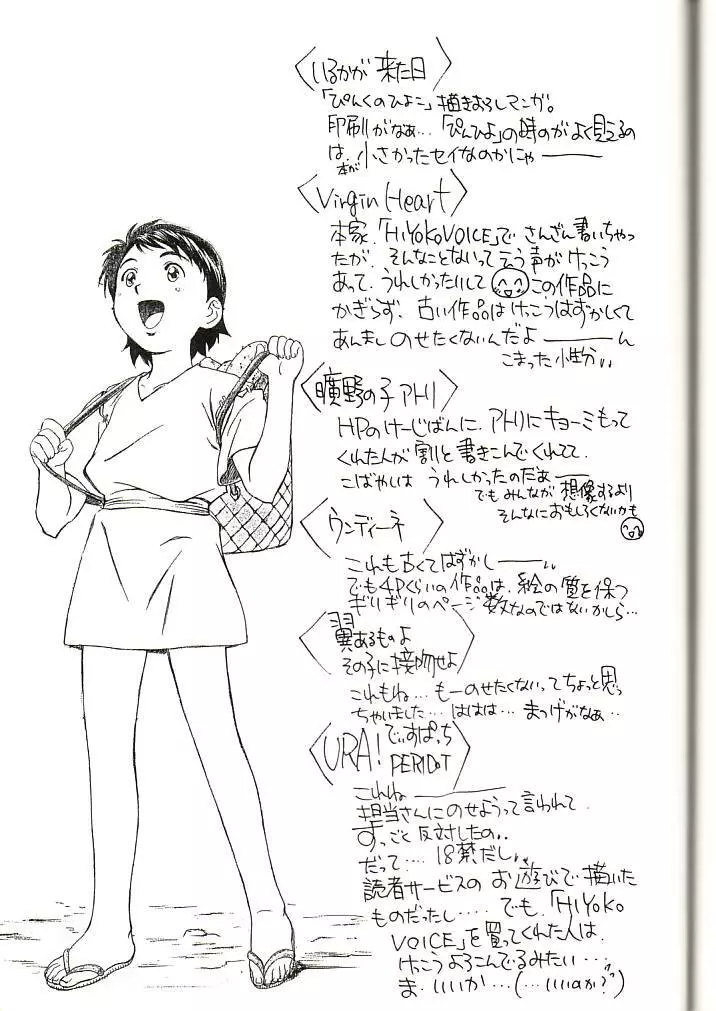 いるかが 来た日
「ぴんくのひよこ」描きおろしマンガ。
印刷がなぁ…「ぴんひよ」の時のがよく見えるの
は、本が小さかったセイなのかにゃ———
Virgin Heart
本家、「HIYOKO VOICE」で さんざん書いちゃっ
たが、そんなことないって言う声がけっこう
あって、うれしかったいして この作品に
かぎらず、古い作品はけっこうはずかしくて
あんまし のせたくないんだよ———ん
こまった小性分、、
曠野の子 アHリ
HPのけーじばんに、アHリにキョーミもって
くれた人が 割と書きこんでくれてて、
こばやしは うれしかったのだぁ——
でも みんなが 想像するより
そんなにおもしろくないかも
ウンディーネ
これも古くてはずかし———、、
でも4Pくらいの作品は、絵の質を保つ
ギリギリのページ数なのではないかしら…
翼あるものよ
その子に接吻せよ
これもね… もーのせたくないってちょっと思っ
ちゃいました… ははは… まつげがなぁ‥
URA! でぃすぱっち
PERIDOT
これね————
担当さんにのせようって言われて
すっごく反対したの、、
だって…. 18禁だし、、
読者サービスの お遊びで描いた
ものだったし….. でも、「HIYOKO
VOICE」を買ってくれた人は、
けっこうよろこんでるみたい…
ま、いいか…(…いいのか?)